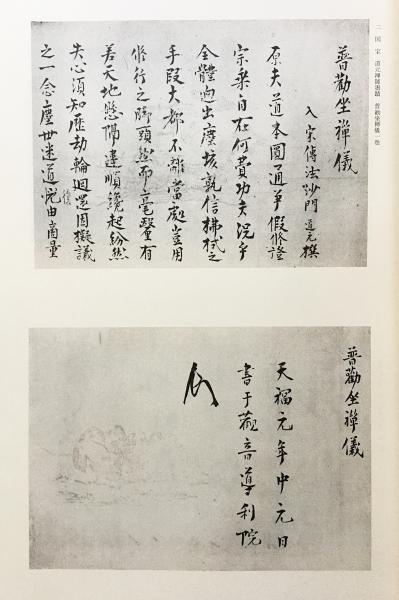 二 国宝 道元禅師墨蹟 普勧坐禅儀 一巻
普勸坐禪儀
入宋傳法沙門 道元 撰
原夫道本圓通爭假修證
宗乘自在何費功夫況乎
全體迥出塵埃孰信拂拭之
手段大都不離當處豈用
修行之脚頭然而毫釐有
差天地懸隔違順纔起紛然
失心須知歷劫輪迴還因擬議
之一念塵世迷道復由商量
普勸坐禪儀
天福元年中元日
書于觀音導利院